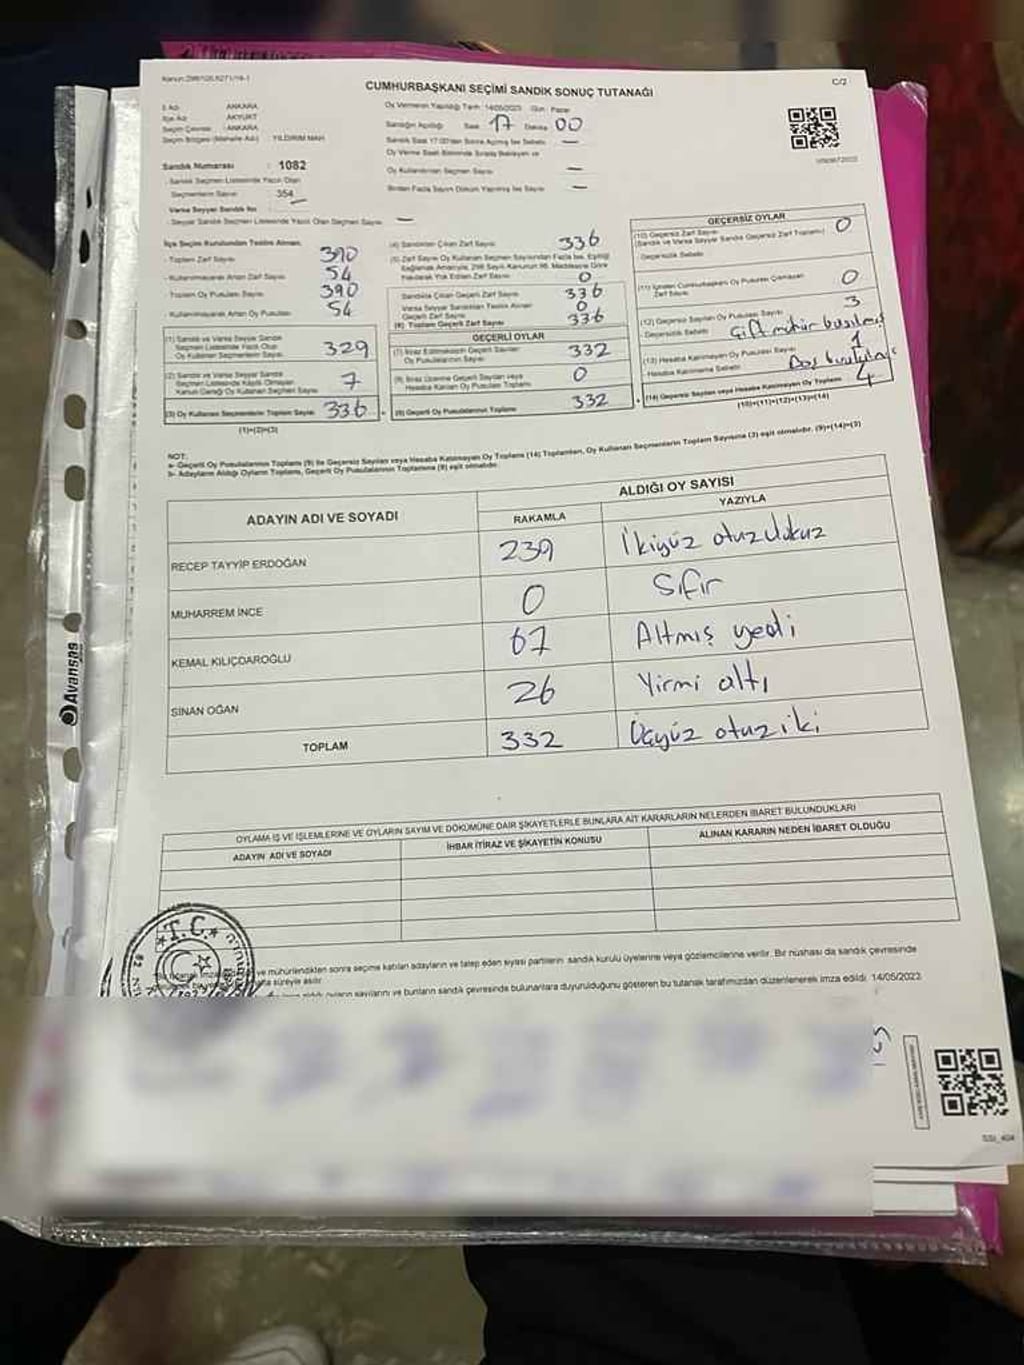 Kanun:298/105,6271/19-1
C/2
CUMHURBAŞKANI SEÇİMİ SANDIK SONUÇ TUTANAĞI
İl Adı : ANKARA
İlçe Adı : AKYURT
Seçim Çevresi : ANKARA
Seçim Bölgesi (Mahalle Adı) : YILDIRIM MAH
Oy Vermenin Yapıldığı Tarih : 14/05/2023 Gün : Pazar
Sandığın Açıldığı Saat 17 Dakika 00
Sandık Saat 17:00'den Sonra Açılmış İse Sebebi —
Oy Kullandırılan Seçmen Sayısı —
Birden Fazla Sayım Döküm Yapılmış İse Sayısı —
Sandık Numarası : 1082
Sandık Seçmen Listesinde Yazılı Olan
Seçmenlerin Sayısı : 354
Varsa Seyyar Sandık No
Seyyar Sandık Seçmen Listesinde Yazılı Olan Seçmen Sayısı —
İlçe Seçim Kurulundan Teslim Alınan
- Toplam Zarf Sayısı 390
- Kullanılmayarak Artan Zarf Sayısı 54
- Toplam Oy Pusulası Sayısı 390
- Kullanılmayarak Artan Oy Pusulası 54
(1) Sandık ve Varsa Seyyar Sandık
Seçmen Listesinde Yazılı Olup
Oy Kullanan Seçmenlerin Sayısı 329
(2) Sandık ve Varsa Seyyar Sandık
Seçmen Listesinde Kayıtlı Olmayan
Kanun Gereği Oy Kullanan Seçmen Sayısı 7
(3) Oy Kullanan Seçmenlerin Toplam Sayısı 336
(1)+(2)=(3)
(4) Sandıktan Çıkan Zarf Sayısı 336
(5) Zarf Sayısı Oy Kullanan Seçmen Sayısından Fazla İse, Eşitliği
Sağlamak Amacıyla, 298 Sayılı Kanunun 98. Maddesine Göre
Yakılarak Yok Edilen Zarf Sayısı 0
Sandıkta Çıkan Geçerli Zarf Sayısı 336
Varsa Seyyar Sandıktan Teslim Alınan
Geçerli Zarf Sayısı 0
(6) Toplam Geçerli Zarf Sayısı 336
GEÇERLİ OYLAR
(7) İtiraz Edilmeksizin Geçerli Sayılan
Oy Pusulalarının Sayısı 332
(8) İtiraz Üzerine Geçerli Sayılan veya
Hesaba Katılan Oy Pusulası Toplamı 0
(9) Geçerli Oy Pusulalarının Toplamı 332
GEÇERSİZ OYLAR
(10) Geçersiz Zarf Sayısı 0
(Sandık ve Varsa Seyyar Sandık Geçersiz Zarf Toplamı)
Geçersizlik Sebebi
(11) İçinden Cumhurbaşkanı Oy Pusulası Çıkmayan
Zarf Sayısı 0
(12) Geçersiz Sayılan Oy Pusulası Sayısı 3
Geçersizlik Sebebi Çift mühür basılmış
(13) Hesaba Katılmayan Oy Pusulası Sayısı 1
Hesaba Katılmama Sebebi Boş bırakılmış
(14) Geçersiz Sayılan veya Hesaba Katılmayan Oy Toplamı 4
(10)+(11)+(12)+(13)=(14)
NOT:
a- Geçerli Oy Pusulalarının Toplamı (9) ile Geçersiz Sayılan veya Hesaba Katılmayan Oy Toplamı (14) Toplamları, Oy Kullanan Seçmenlerin Toplam Sayısına (3) eşit olmalıdır. (9)+(14)=(3)
b- Adayların Aldığı Oyların Toplamı, Geçerli Oy Pusulalarının Toplamına (9) eşit olmalıdır.
ADAYIN ADI VE SOYADI
ALDIĞI OY SAYISI
RAKAMLA YAZIYLA
RECEP TAYYİP ERDOĞAN 239 İkiyüz otuzdokuz
MUHARREM İNCE 0 Sıfır
KEMAL KILIÇDAROĞLU 67 Altmış yedi
SİNAN OĞAN 26 Yirmi altı
TOPLAM 332 Üçyüz otuz iki
OYLAMA İŞ VE İŞLEMLERİNE VE OYLARIN SAYIM VE DÖKÜMÜNE DAİR ŞİKAYETLERLE BUNLARA AİT KARARLARIN NELERDEN İBARET BULUNDUKLARI
ADAYIN ADI VE SOYADI İHBAR İTİRAZ VE ŞİKAYETİN KONUSU ALINAN KARARIN NEDEN İBARET OLDUĞU
T.C.
ve mühürlendikten sonra seçime katılan adayların ve talep eden siyasi partilerin sandık kurulu üyelerine veya gözlemcilerine verilir. Bir nüshası da sandık çevresinde
süreyle asılır.
oyların sayılarını ve bunların sandık çevresinde bulunanlara duyurulduğunu gösteren bu tutanak tarafımızdan düzenlenerek imza edildi. 14/05/2023
Avansas
SSI_404